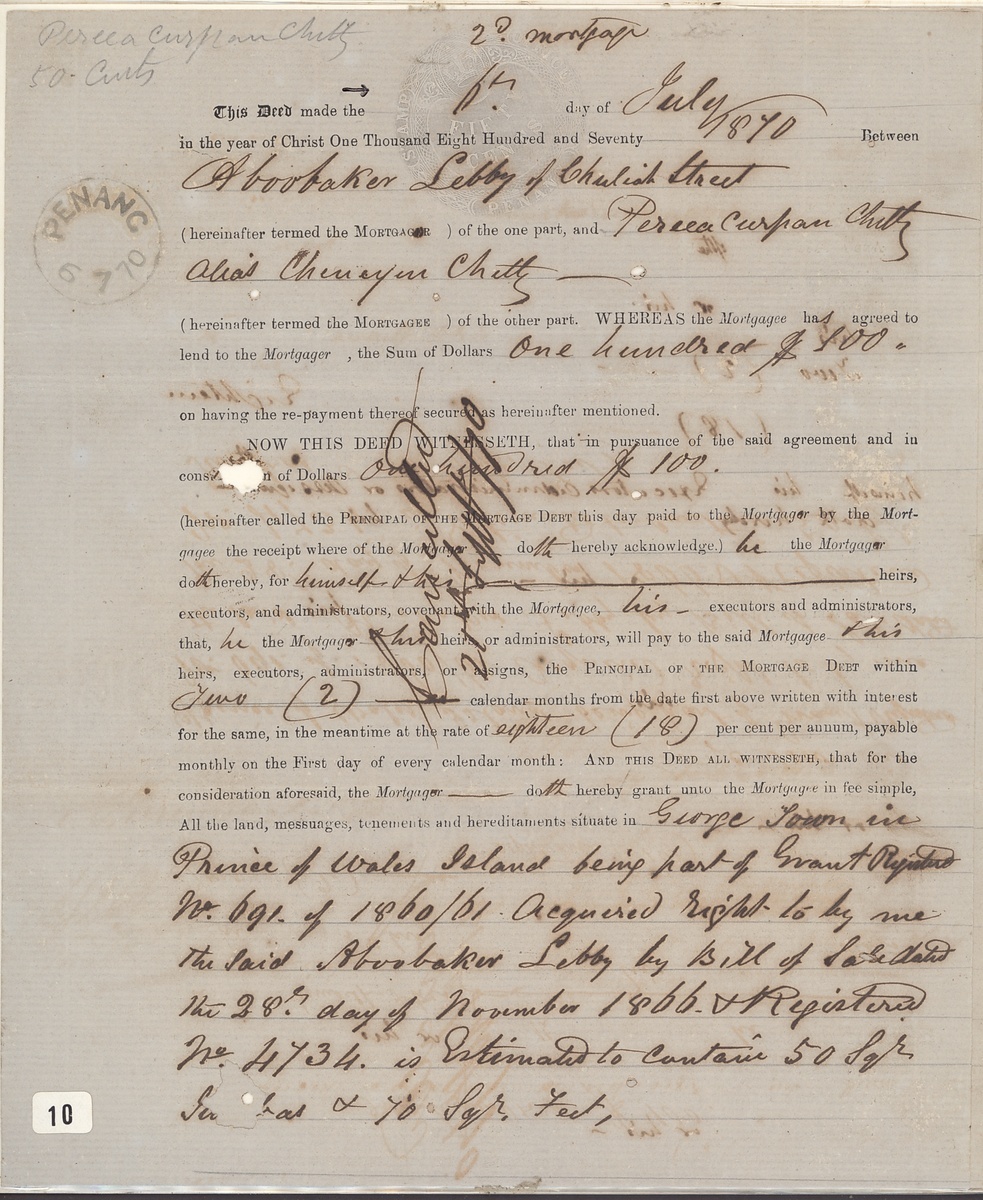 Pereea Curpan Chitty
50 Cents
2d. mortgage
This Deed made the 6th. day of July 1870
in the year of Christ One Thousand Eight Hundred and Seventy Between
Aboobaker Lebby of Chuliah Street
(hereinafter termed the MORTGAGER ) of the one part, and Pereea Curpan Chitty
alias Chenayen Chitty
(hereinafter termed the MORTGAGEE ) of the other part. WHEREAS the Mortgagee has agreed to
lend to the Mortgager , the Sum of Dollars One hundred $ 100 "
on having the re-payment thereof secured as hereinafter mentioned.
NOW THIS DEED WITNESSETH, that in pursuance of the said agreement and in
cons n of Dollars One hundred $ 100.
(hereinafter called the PRINCIPAL OF THE MORTGAGE DEBT this day paid to the Mortgager by the Mort-
gagee the receipt where of the Mortgager doth hereby acknowledge.) he the Mortgager
doth hereby, for himself & his heirs,
executors, and administrators, covenant with the Mortgagee, his executors and administrators,
that, he the Mortgager & his heirs, or administrators, will pay to the said Mortgagee & his
heirs, executors, administrators, or assigns, the PRINCIPAL OF THE MORTGAGE DEBT within
Two (2) calendar months from the date first above written with interest
for the same, in the meantime at the rate of eighteen (18) per cent per annum, payable
monthly on the First day of every calendar month: AND THIS DEED ALL WITNESSETH, that for the
consideration aforesaid, the Mortgager doth hereby grant unto the Mortgagee in fee simple,
All the land, messuages, tenements and hereditaments situate in George Town in
Prince of Wales Island being part of Grant Registered
No. 691. of 1860/61. Acquired Right to by me
the said Aboobaker Lebby by Bill of Sale dated
the 28th. day of November 1866. & Registered
No. 4734. is Estimated to contain 50 Sqr
& 70 Sqr. Feet,
Cancelled
PENANG
6 7 70
10